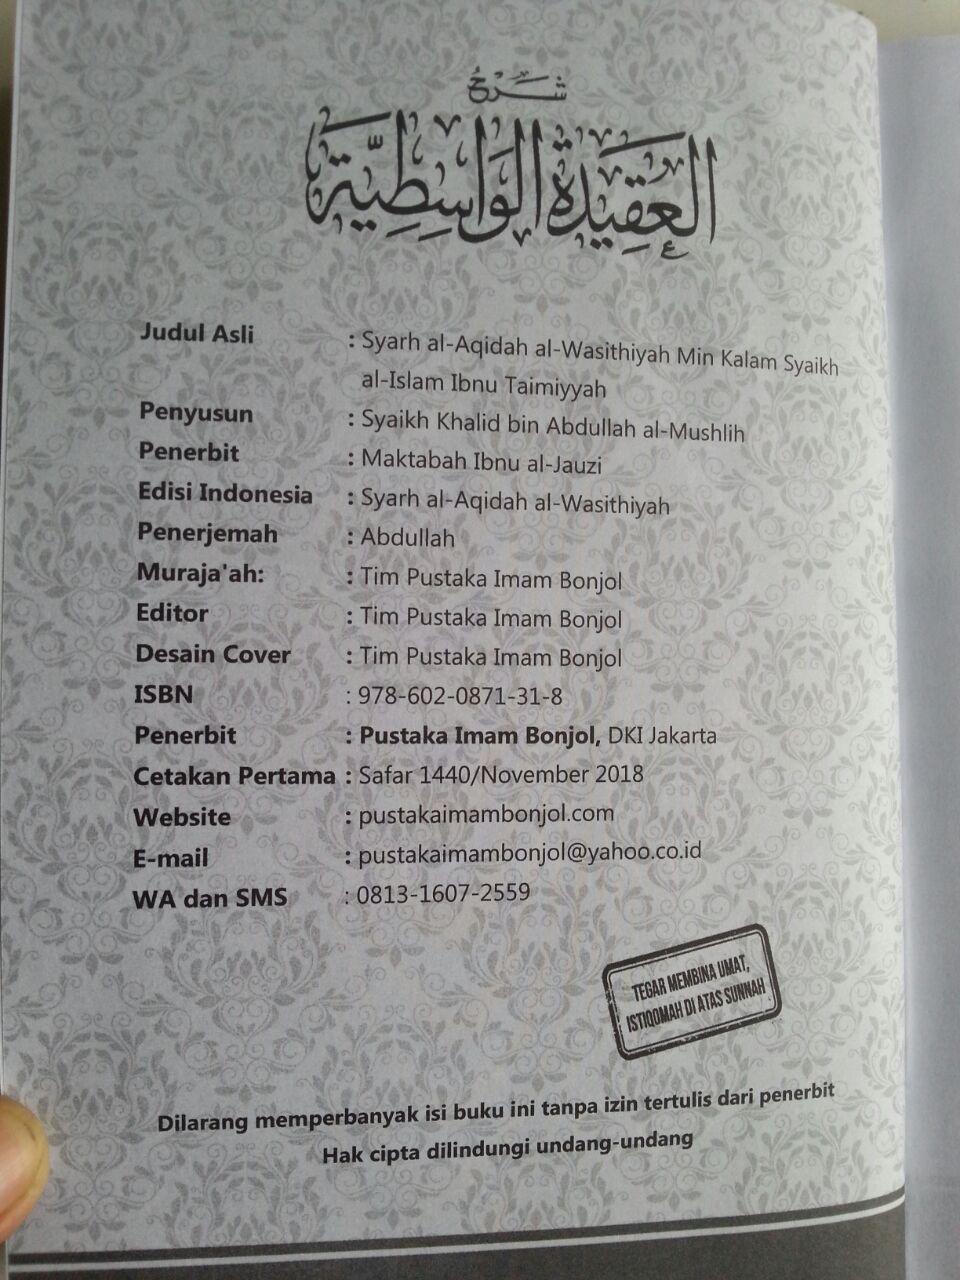 شرح
العقيدة الواسطية
Judul Asli : Syarh al-Aqidah al-Wasithiyah Min Kalam Syaikh
al-Islam Ibnu Taimiyyah
Penyusun : Syaikh Khalid bin Abdullah al-Mushlih
Penerbit : Maktabah Ibnu al-Jauzi
Edisi Indonesia : Syarh al-Aqidah al-Wasithiyah
Penerjemah : Abdullah
Muraja'ah: : Tim Pustaka Imam Bonjol
Editor : Tim Pustaka Imam Bonjol
Desain Cover : Tim Pustaka Imam Bonjol
ISBN : 978-602-0871-31-8
Penerbit : Pustaka Imam Bonjol, DKI Jakarta
Cetakan Pertama : Safar 1440/November 2018
Website : pustakaimambonjol.com
E-mail : pustakaimambonjol@yahoo.co.id
WA dan SMS : 0813-1607-2559
TEGAR MEMBINA UMAT,
ISTIQOMAH DI ATAS SUNNAH
Dilarang memperbanyak isi buku ini tanpa izin tertulis dari penerbit
Hak cipta dilindungi undang-undang